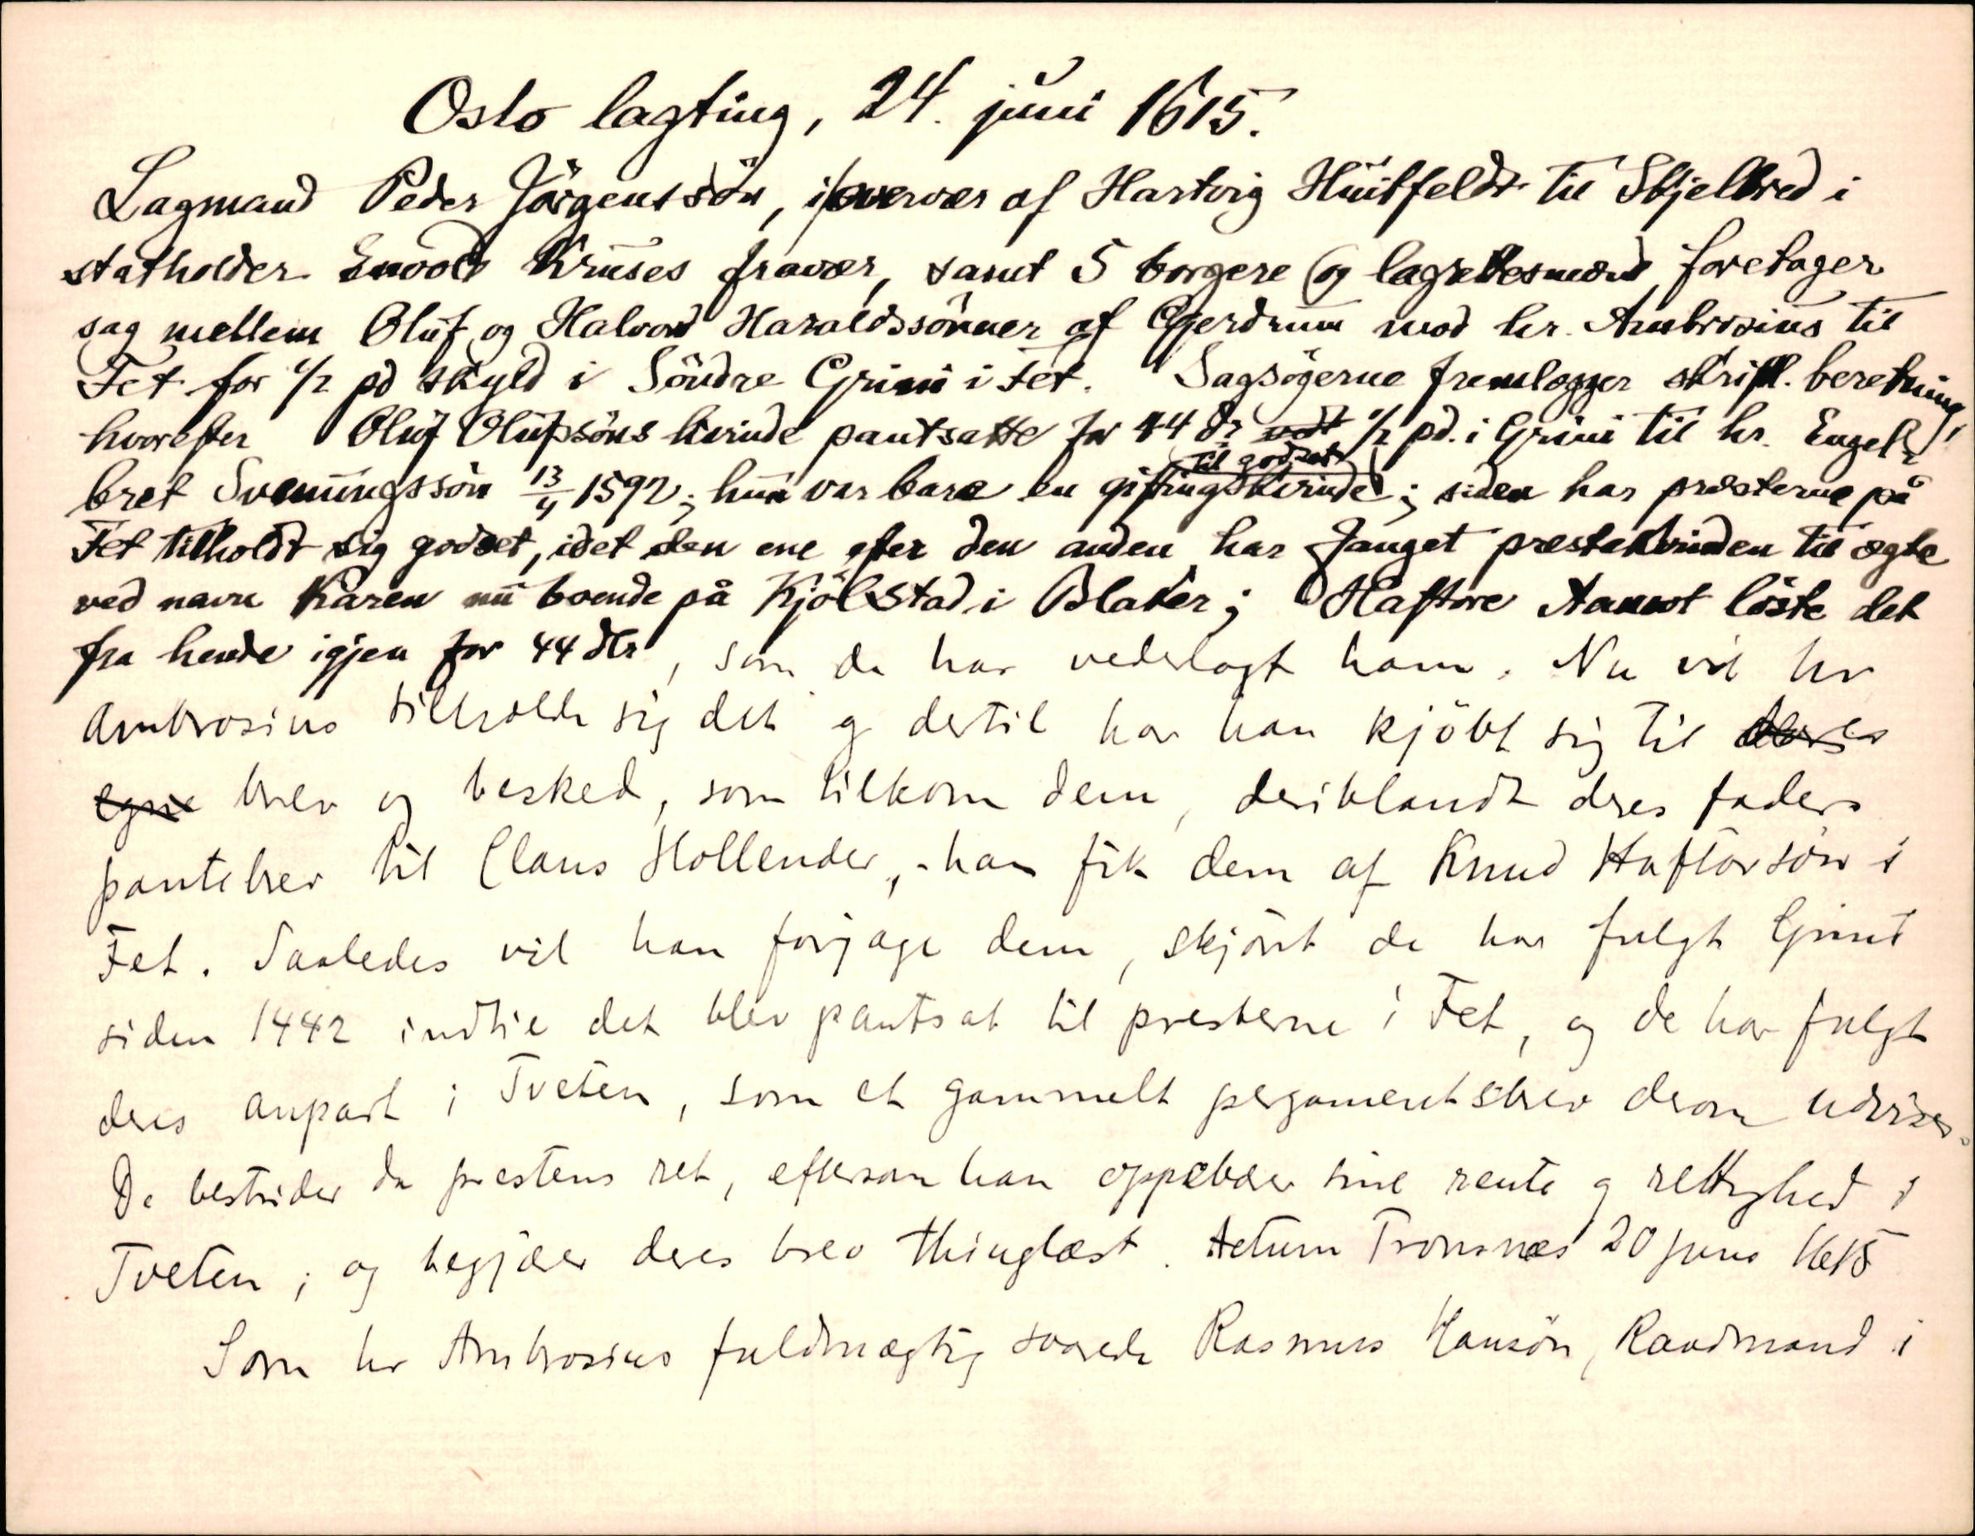 Oslo lagting, 24. juni 1615.
Lagmand Peder Jörgenssön, i overvær af Hartvig Huitfeldt til Skjelbred i
statholder Envold Kruses fravær, samt 5 borgere og lagrettesmænd, foretager
sag mellem Oluf og Halvord Haraldssönner af Gjerdrum mod hr. Ambrosius til
Fet for 1/2 pd skyld i Söndre Grini i Fet. Sagsögerne fremlægger skriftl. beretning,
hvorefter Oluf Olufssöns kvinde pantsatte for 44 dr 1/2 pd. i Grini til hr. Engel-
til godset
bret Svenungssön 13/4 1592; hun var bare en giftingskvinde; siden har præsterne på
Fet tilholdt sig godset, idet den ene efter den anden har fanget præstekvinden til ægte
ved navn Karen nu boende på Kjölstad i Blaker; Haftore Aamot löste det
fra hende igjen for 44 dlr, som de har vederlagt ham. Nu vil hr
Ambrosius tilholde sig det og dertil har han kjöbt sig til deres
egne brev og besked, som tilkom dem, deriblandt deres faders
pantebrev til Claus Hollender, - han fik dem af Knud Haftorsön i
Fet. Saaledes vil han forjage dem, skjönt de har fulgt Grini
siden 1442 indtil det blev pantsat til presterne i Fet, og de har fulgt
deres anpart i Tveten, som et gammelt pergamentsbrev derom udviser.
De bestrider da prestens ret, eftersom han oppebær sine rente og rettighed i
Tveten; og begjærer deres brev thinglæst. Actum Tronsnæs 20 juni 1615
Som hr Ambrosius fuldmægtig svarede Rasmus Hansön, Raadmand i